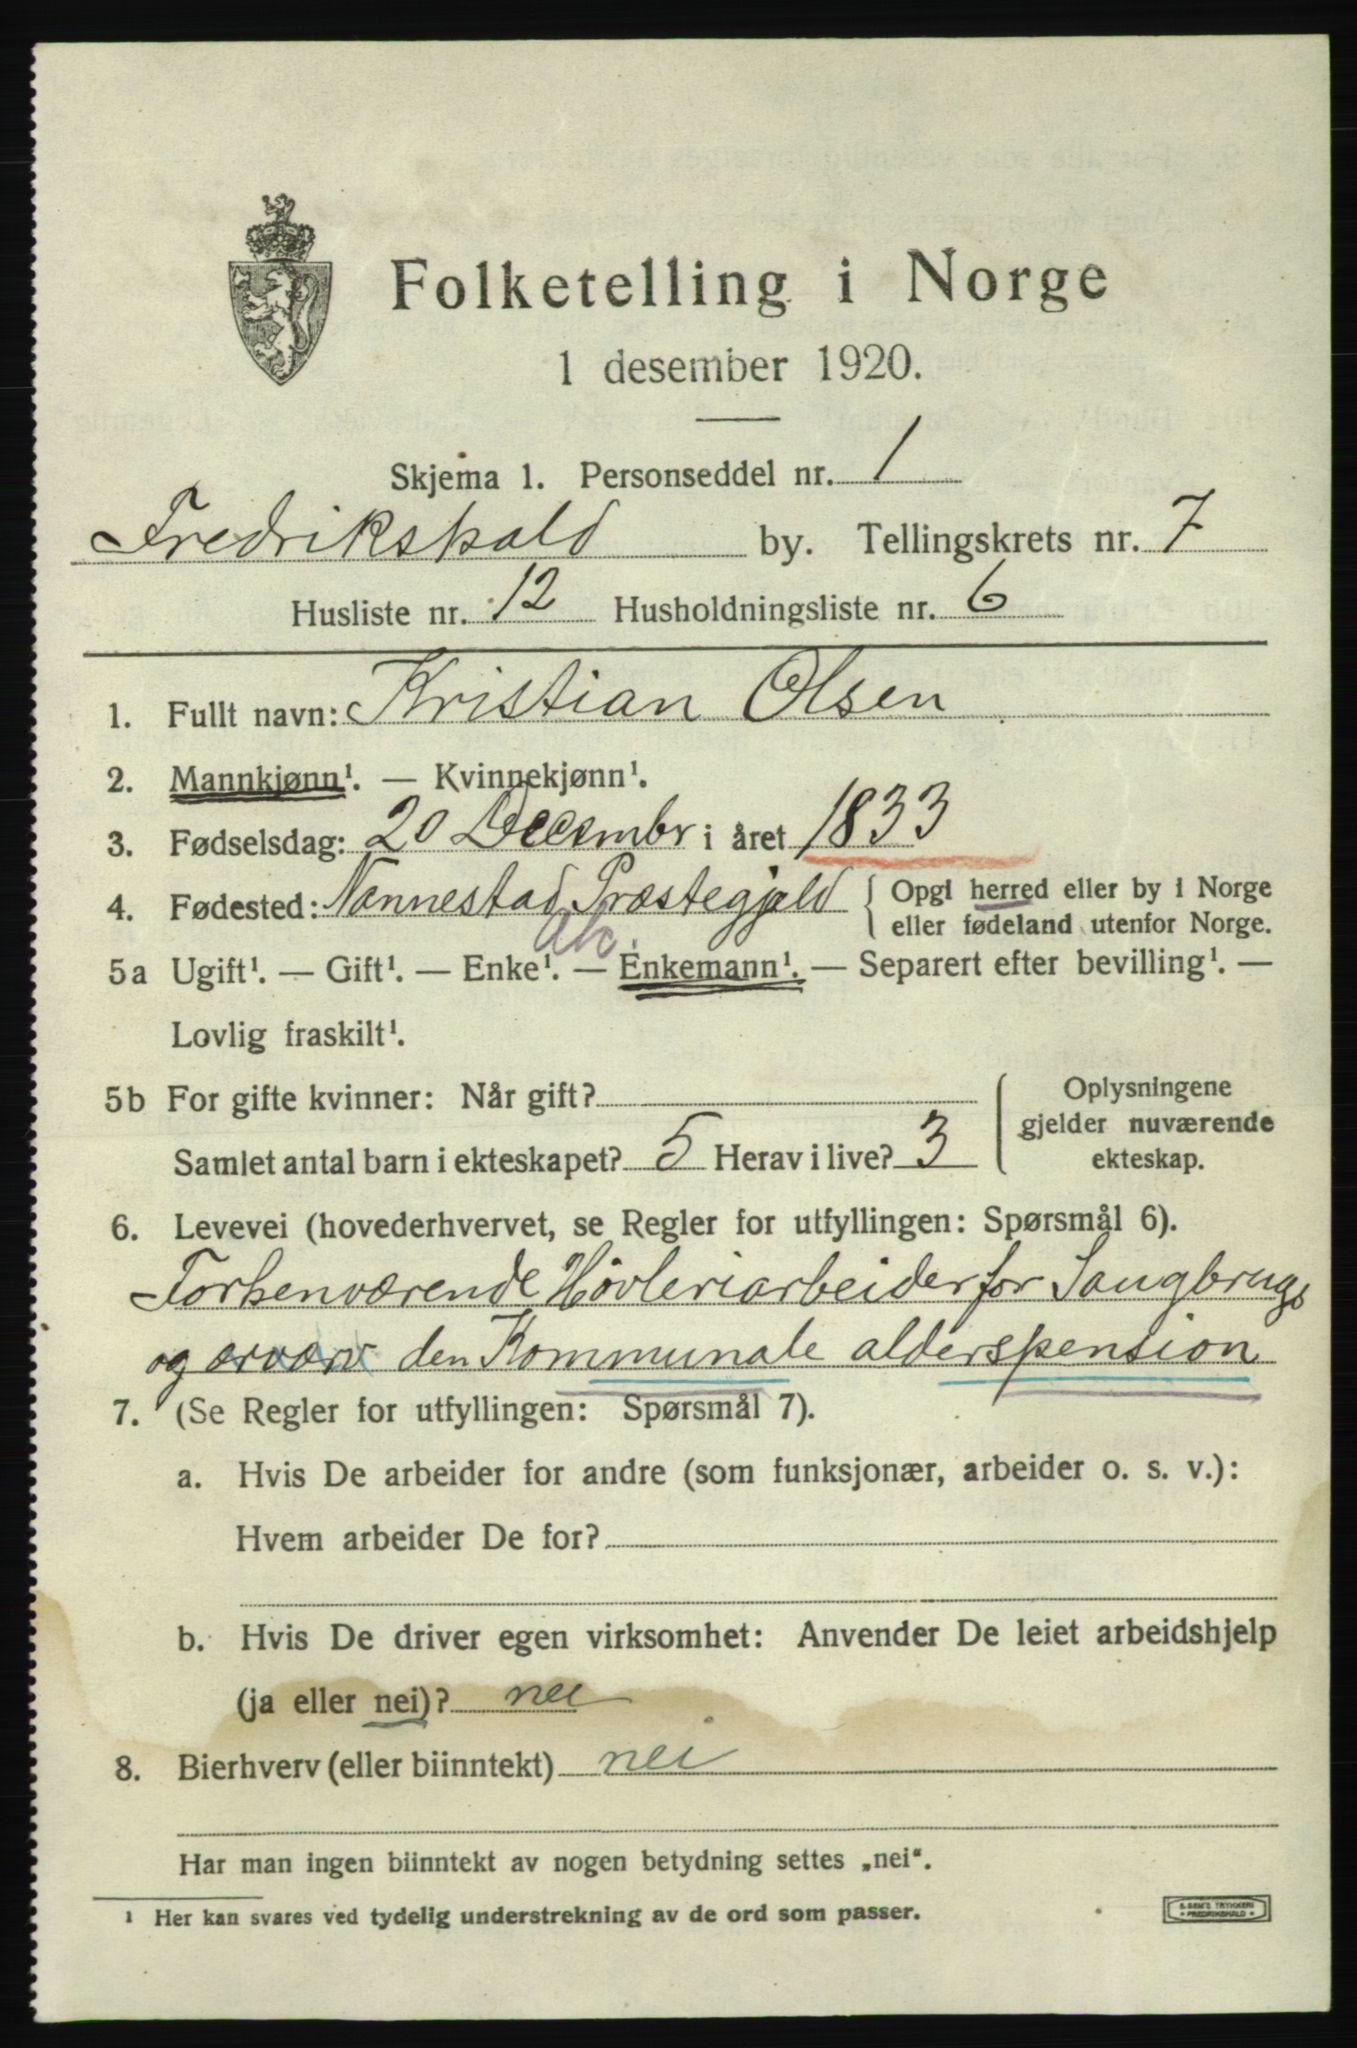 Folketelling i Norge
1 desember 1920.
Skjema 1. Personseddel nr. 1
Fredrikshald by. Tellingskrets nr. 7
Husliste nr. 12 Husholdningsliste nr. 6
1. Fullt navn: Kristian Olsen
2. Mannkjønn¹. — Kvinnekjønn¹.
3. Fødselsdag: 20 Decembr i året 1833
4. Fødested: Nannestad Præstegjeld { Opgi herred eller by i Norge
eller fødeland utenfor Norge.
5a Ugift¹. — Gift¹. — Enke¹. — Enkemann¹. — Separert efter bevilling¹. —
Lovlig fraskilt¹.
5b For gifte kvinner: Når gift?
Samlet antal barn i ekteskapet? 5 Herav i live? 3
Oplysningene
gjelder nuværende
ekteskap.
6. Levevei (hovederhvervet, se Regler for utfyllingen: Spørsmål 6).
Forhenværende Høvleriarbeider for Saugbrugs
og den Kommunale alderspension
7. (Se Regler for utfyllingen: Spørsmål 7).
a. Hvis De arbeider for andre (som funksjonær, arbeider o. s. v.):
Hvem arbeider De for?
b. Hvis De driver egen virksomhet: Anvender De leiet arbeidshjelp
(ja eller nei)? nei
8. Bierhverv (eller biinntekt) nei
Har man ingen biinntekt av nogen betydning settes „nei“.
¹ Her kan svares ved tydelig understrekning av de ord som passer.